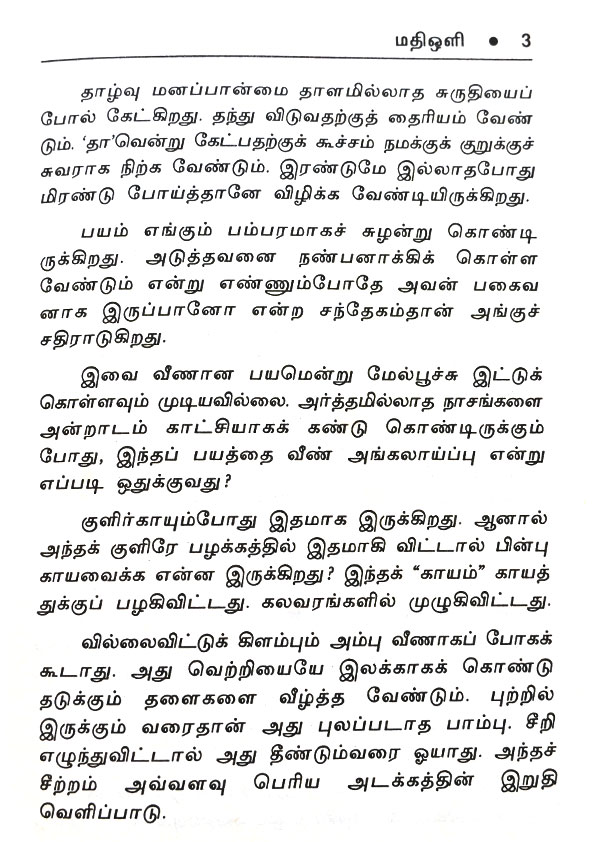 மதிஒளி • 3
தாழ்வு மனப்பான்மை தாளமில்லாத சுருதியைப்
போல் கேட்கிறது. தந்து விடுவதற்குத் தைரியம் வேண்
டும். ‘தா’வென்று கேட்பதற்குக் கூச்சம் நமக்குக் குறுக்குச்
சுவராக நிற்க வேண்டும். இரண்டுமே இல்லாதபோது
மிரண்டு போய்த்தானே விழிக்க வேண்டியிருக்கிறது.
பயம் எங்கும் பம்பரமாகச் சுழன்று கொண்டி
ருக்கிறது. அடுத்தவனை நண்பனாக்கிக் கொள்ள
வேண்டும் என்று எண்ணும்போதே அவன் பகைவ
னாக இருப்பானோ என்ற சந்தேகம்தான் அங்குச்
சதிராடுகிறது.
இவை வீணான பயமென்று மேல்பூச்சு இட்டுக்
கொள்ளவும் முடியவில்லை. அர்த்தமில்லாத நாசங்களை
அன்றாடம் காட்சியாகக் கண்டு கொண்டிருக்கும்
போது, இந்தப் பயத்தை வீண் அங்கலாய்ப்பு என்று
எப்படி ஒதுக்குவது?
குளிர்காயும்போது இதமாக இருக்கிறது. ஆனால்
அந்தக் குளிரே பழக்கத்தில் இதமாகி விட்டால் பின்பு
காயவைக்க என்ன இருக்கிறது? இந்தக் “காயம்” காயத்
துக்குப் பழகிவிட்டது. கலவரங்களில் முழுகிவிட்டது.
வில்லைவிட்டுக் கிளம்பும் அம்பு வீணாகப் போகக்
கூடாது. அது வெற்றியையே இலக்காகக் கொண்டு
தடுக்கும் தளைகளை வீழ்த்த வேண்டும். புற்றில்
இருக்கும் வரைதான் அது புலப்படாத பாம்பு. சீறி
எழுந்துவிட்டால் அது தீண்டும்வரை ஓயாது. அந்தச்
சீற்றம் அவ்வளவு பெரிய அடக்கத்தின் இறுதி
வெளிப்பாடு.